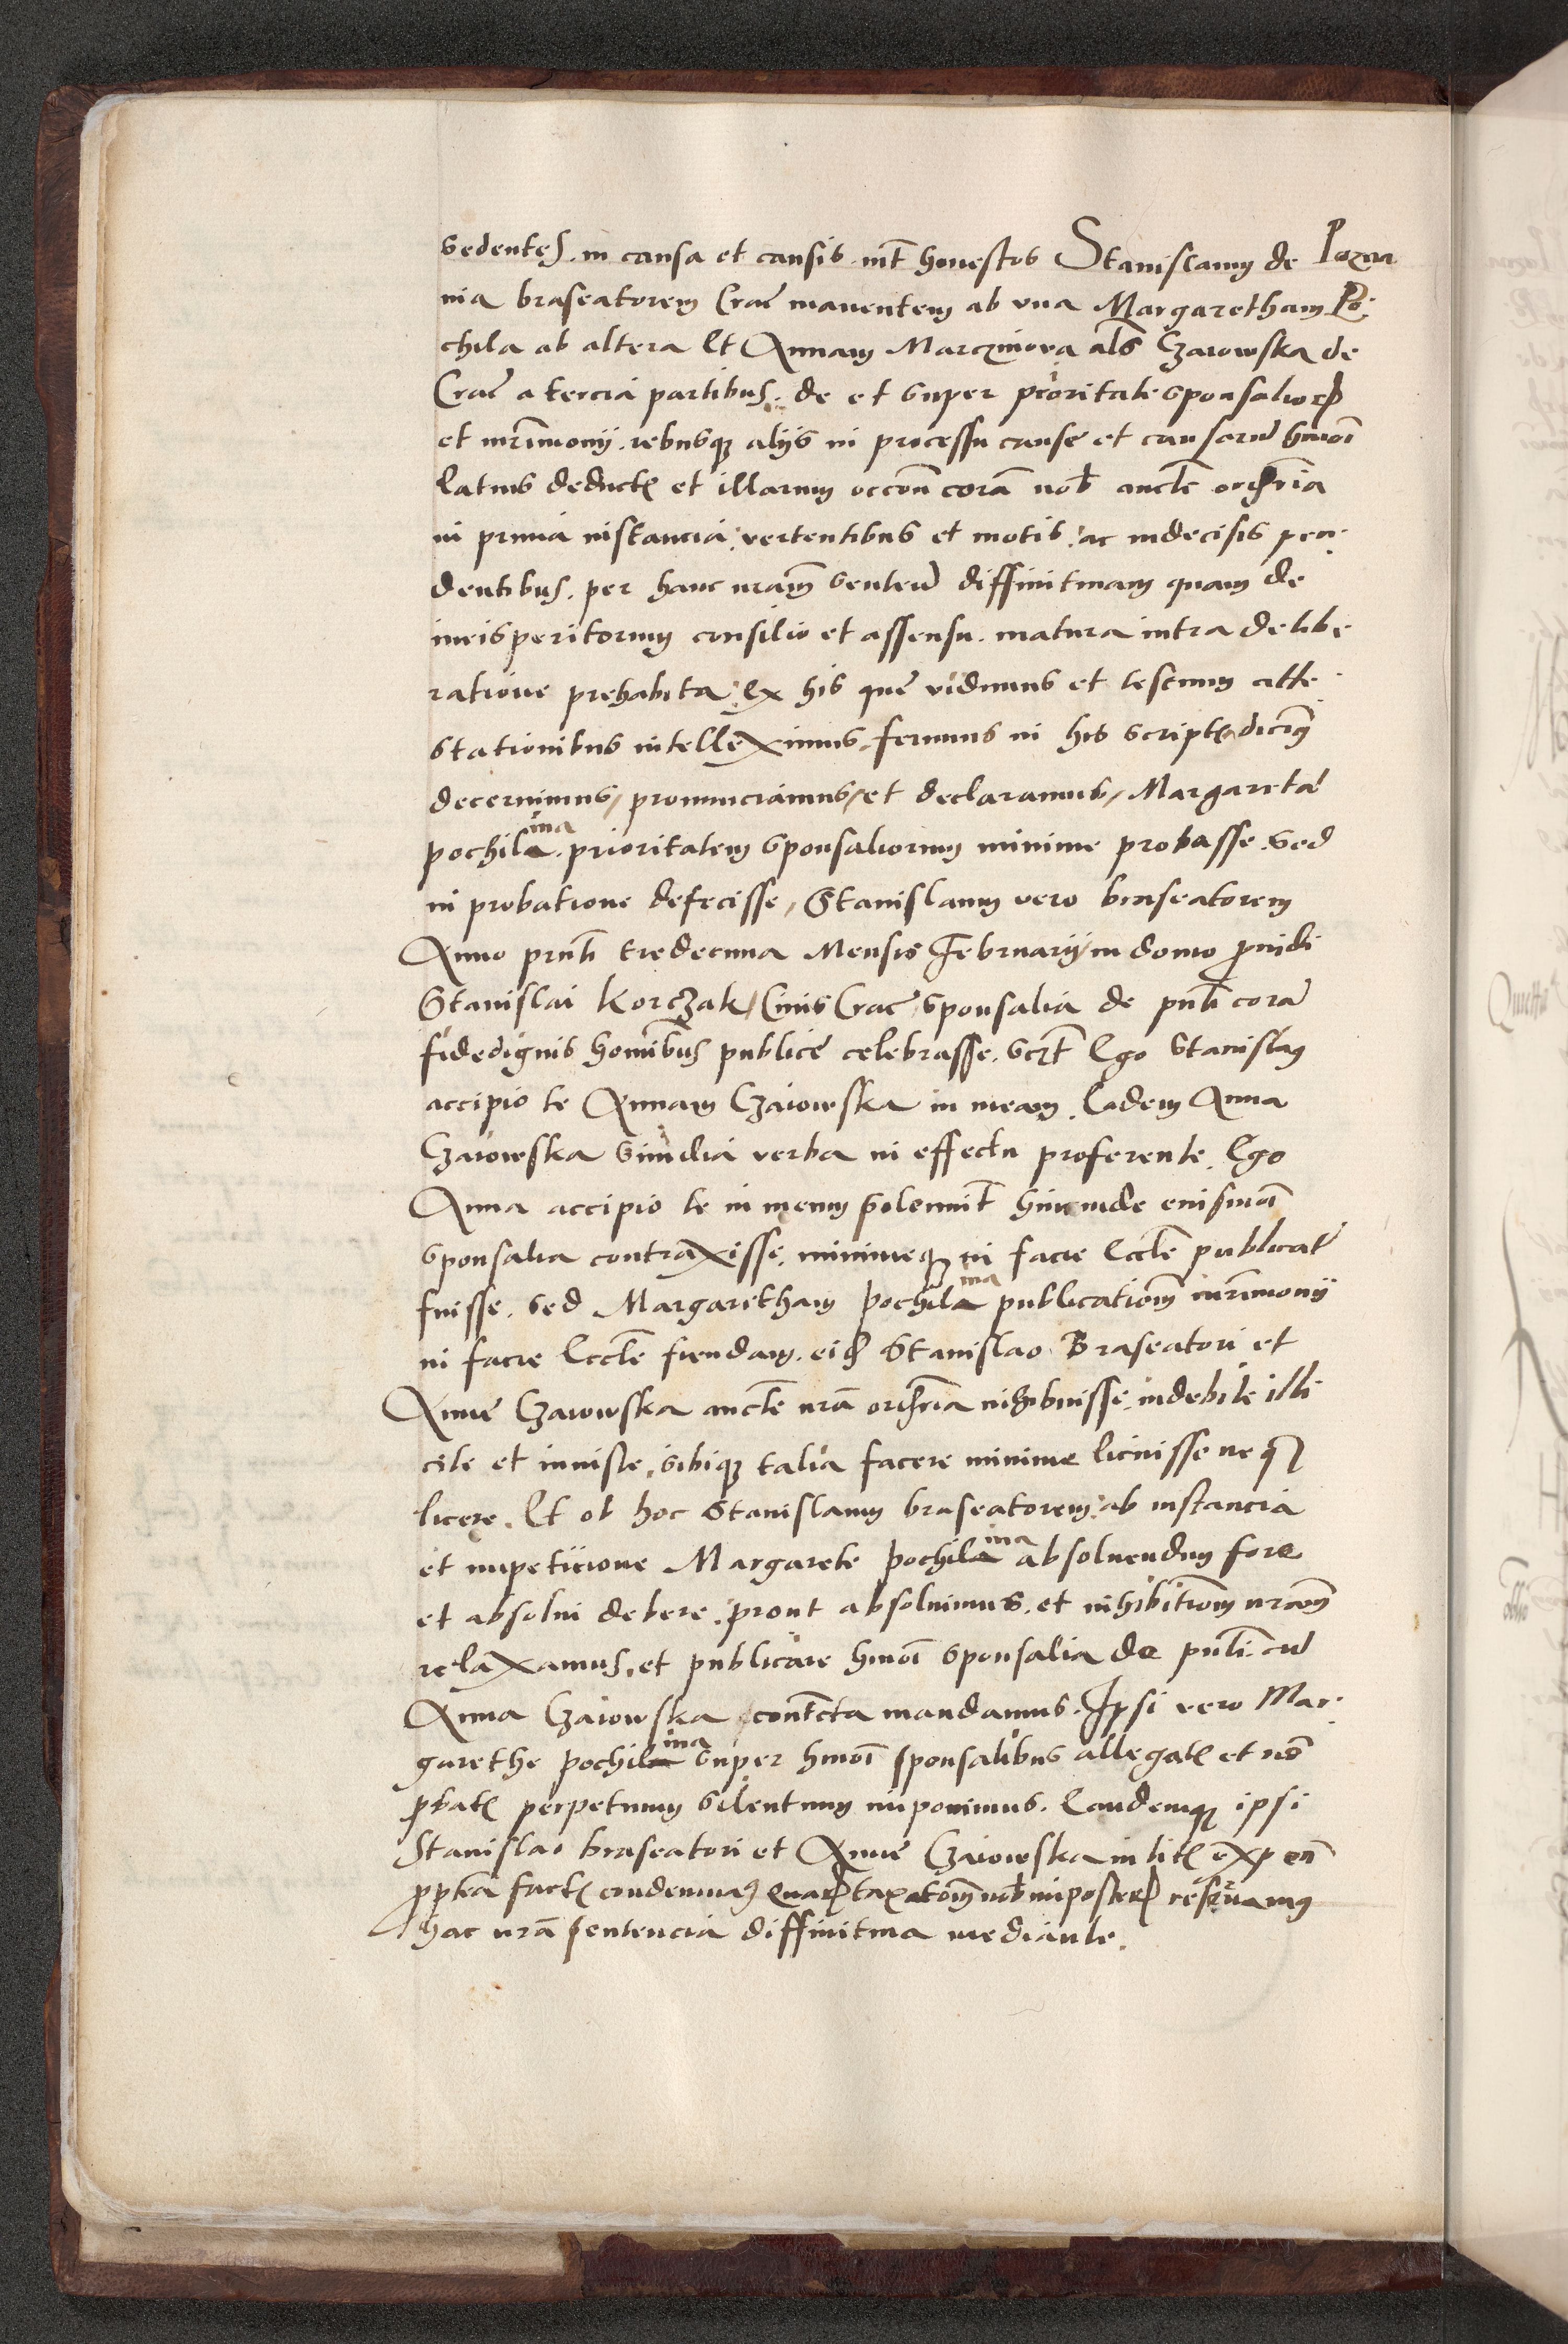 sedentes. in causa et causis int̄ honestos Stanislaum de Pozna
nia braseatorem Crac̄ manentem ab vna Margaretham Po
chila ab altera Et Annam Marczinova als Czaiowska de
Crac̄ a tercia partibus. de et super prioritate sponsalior̄
et mr̄imonij. rebusq; alijs in processu cause et causarū hmōi
latius deduct̄ et illarum occōn̄ corā nob̄ auctē ordr̄ia
in prima instancia vertentibus et motis. ac indecisis pen
dentibus. per hanc nr̄am̄ sentenc̄ diffinitiuam quam de
iurisperitorum consilio et assensu. matura intra delibe
ratione prehabita Ex his que vidimus et testium atte
stationibus intelleximus. ferimus in his script̄ dicim̄
decernimus, pronunciamus, et declaramus, Margaretā
pochila ina. prioritatem sponsaliorum minime probasse. sed
in probatione defecisse, Stanislaum vero braseatorem
Anno prn̄ti tredecima Mensis Februarij, in domo prouidi
Stanislai Korczak, Ciuis Crac̄ sponsalia de pn̄ti corā
fidedignis homībus publice celebrasse. sczt̄ Ego Stanislaꝰ
accipio te Annam Czaiowska in meam. Eadem Anna
Czaiowska similia verba in effectu proferente. Ego
Anna accipio te in meum solennit̄ hincinde eiusmōi
sponsalia contraxisse. minimeq; in facie Eccłe publicat̄
fuisse. sed Margaretham pochila ina publicationem̄ mr̄imonij
in facie Eccłe fiendam. eid̄ Stanislao Braseatori et
Anne Czaiowska auctē nr̄a ordr̄ia inhibuisse. indebite illi
cite et iniuste, sibiq; talia facere minime licuisse neq;
licere. Et ob hoc Stanislaum braseatorem ab instancia
et impeticione Margarete pochila ina absoluendum fore
et absolui debere. prout absoluimus. et inhibitiōm nr̄am̄
relaxamus, et publicare hmōi sponsalia de pn̄ti. cū
Anna Czaiowska contr̄cta mandamus. Ipsi vero Mar
garethe pochila ina super hmōi sponsalibus allegat̄ et nō
probat̄ perpetuum silentium imponimus. Eandemq; ipsi
Stanislao braseatori et Anne Czaiowska in lit̄ expen̄
ppt̄ea fact̄ condemnam̄ quar̄ taxatiōm̄ nob̄ imposter̄ reseruamus
hac nr̄a sentencia diffinitiua mediante.